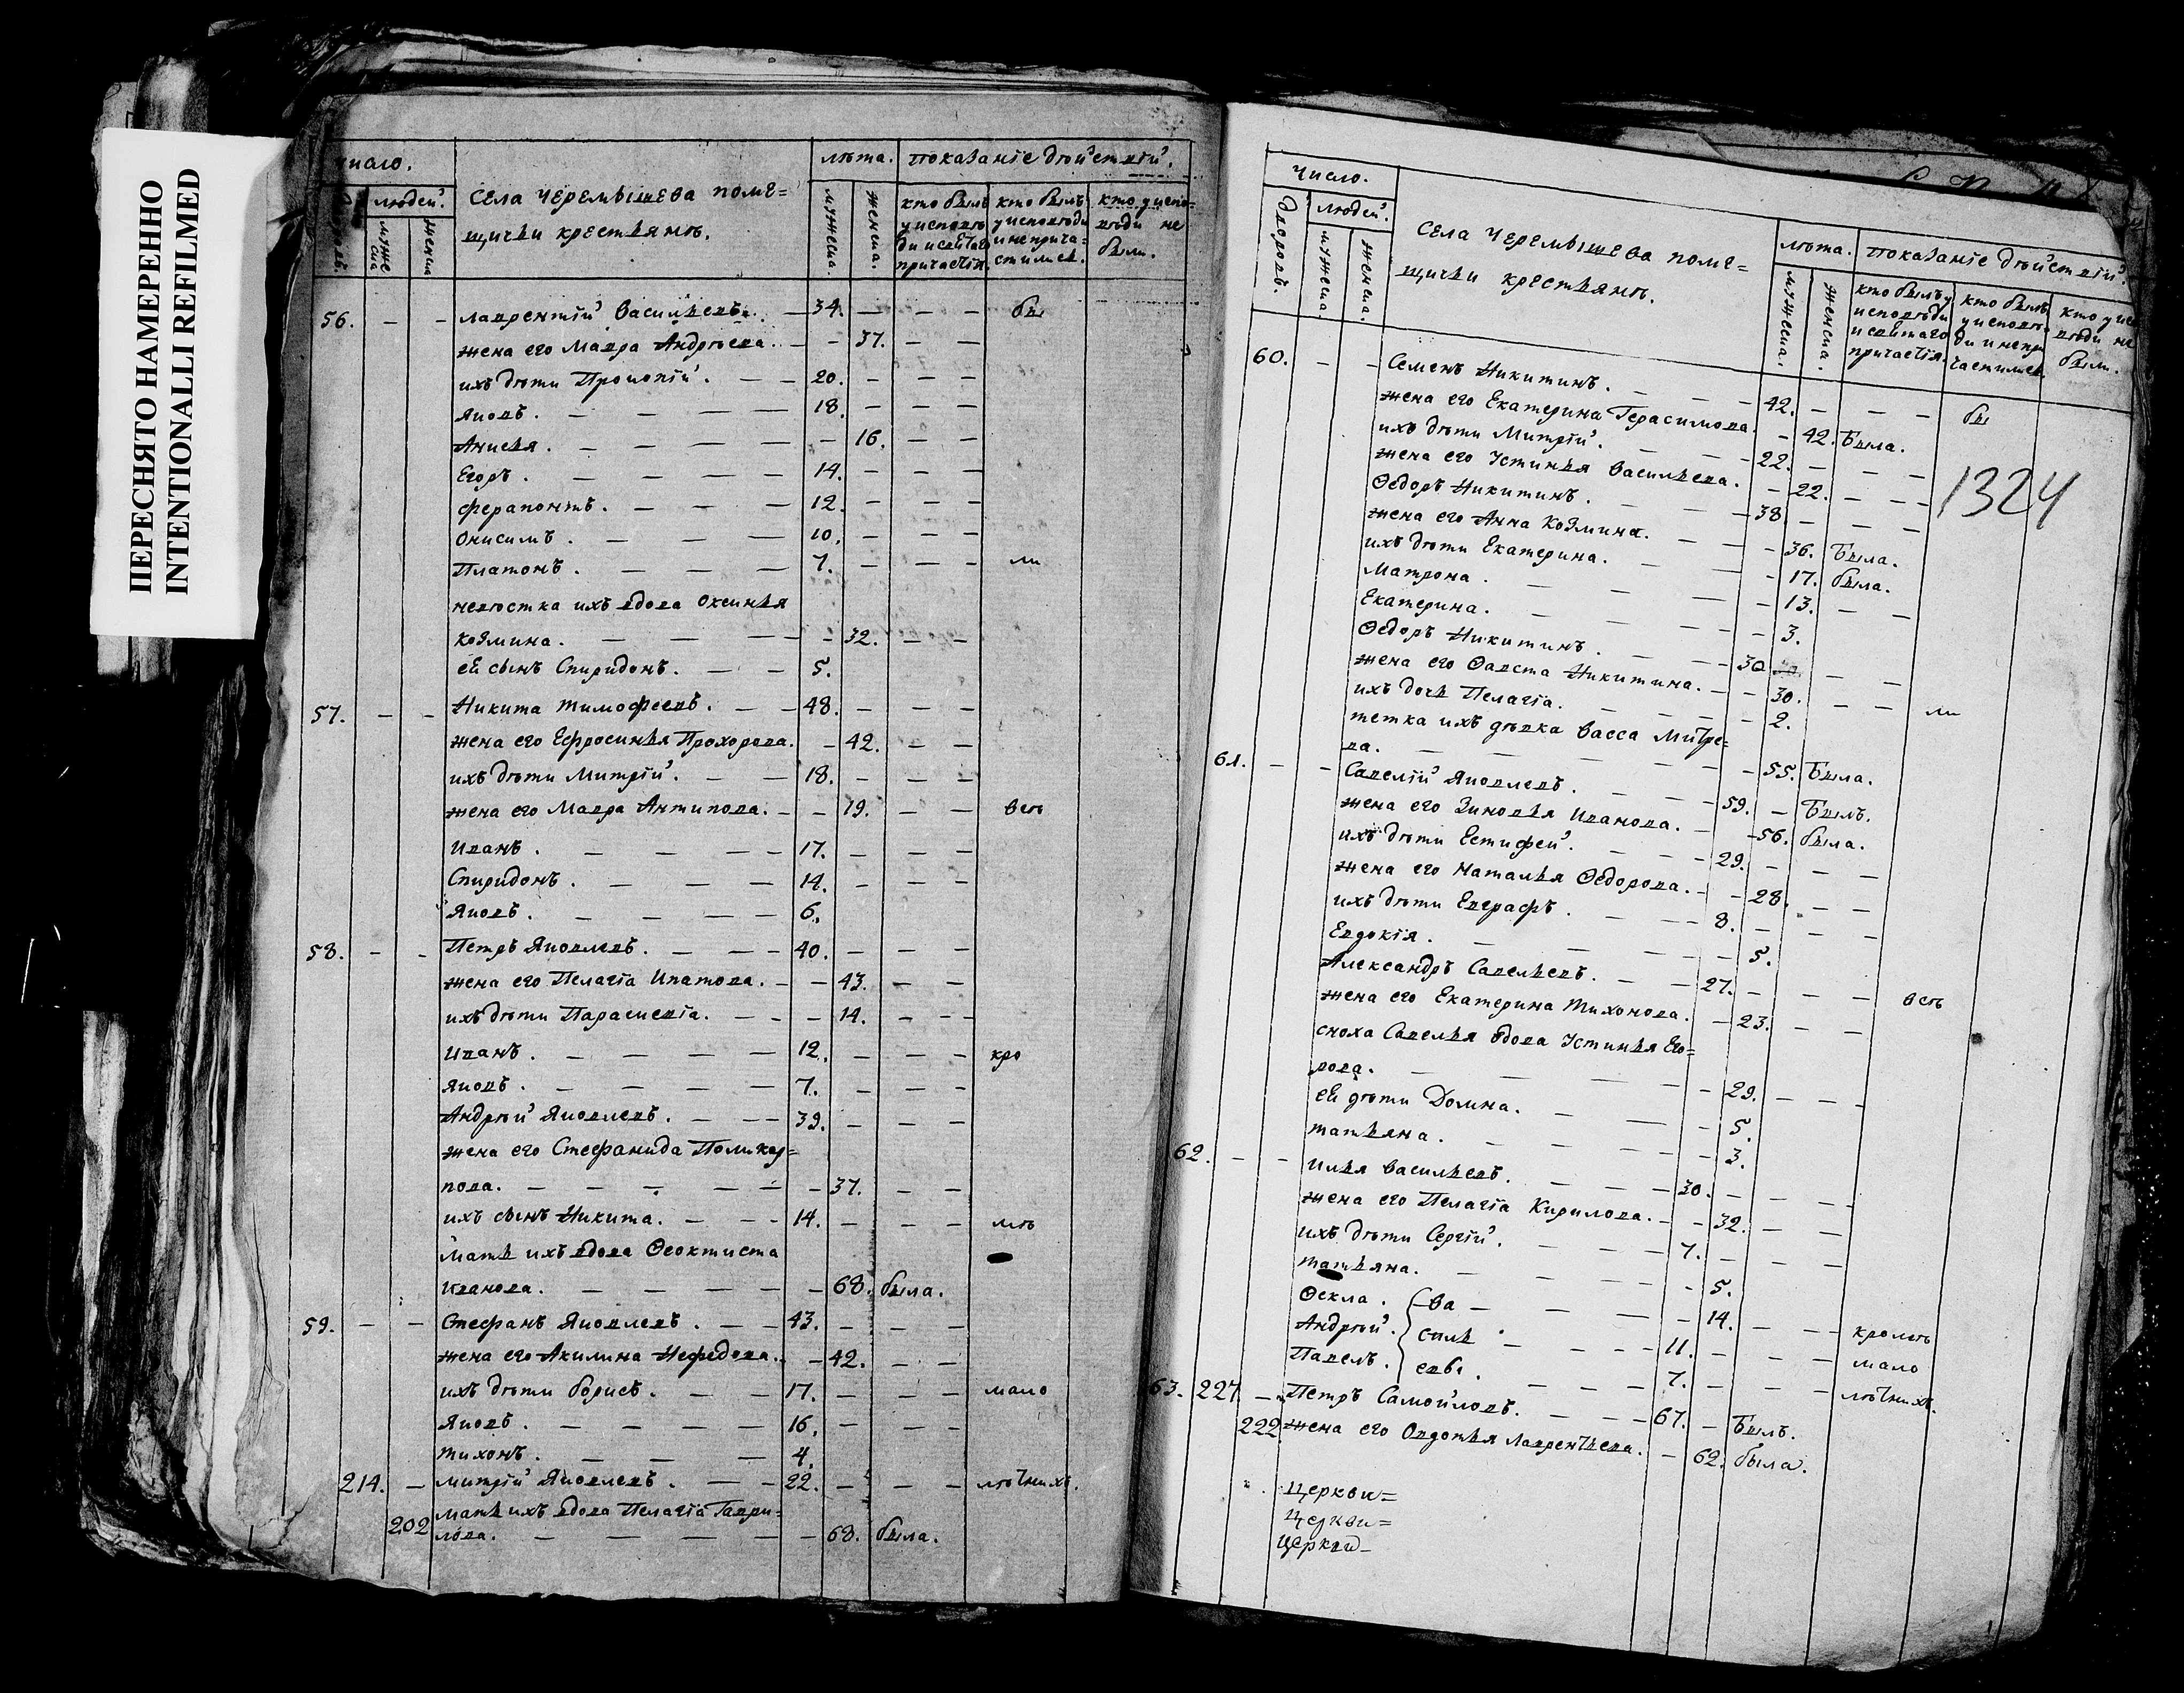 ПЕРЕСНЯТО НАМЕРЕННО
INTENTIONALLI REFILMED
число.
людей.
мужеска
женска
Села Черемышева поме=
щичьи крестьянъ.
лѣта.
мужеска.
женска.
показанїе дѣйствїй.
кто былъ у исповѣди и святаго причастїя.
кто былъ у исповѣди и не причастился.
кто у исповѣди не были.
56. — — Лаврентїй Васильевъ. — 34. — — — бы
жена его Мавра Андрѣева. — — 37. — —
ихъ дѣти Прокопїй. — — 20. — — —
Яковъ. — — — — 18. — — —
Анисья. — — — — — 16. — —
Егоръ. — — — — 14. — — —
Ферапонтъ. — — — 12. — — —
Онисимъ. — — — 10. — — —
Платонъ. — — — 7. — — — ли
невѣстка ихъ вдова Оксинья
Козмина. — — — — — 32. — —
ей сынъ Спиридонъ. — — 5.
57. — — Никита Тимофеевъ. — — 48. — — —
жена его Ефросинья Прохорова. — 42. — —
ихъ дѣти Митрїй. — — 18. — — —
жена его Мавра Антипова. — — 19. — — всѣ
Иванъ. — — — 17. — — —
Спиридонъ. — — — 14. — — —
Яковъ. — — — — 6.
58. — — Петръ Яковлевъ. — — — 40. — — —
жена его Пелагїа Ипатова. — — 43. — —
ихъ дѣти Параскевїа. — — — 14. — — —
Иванъ. — — — — 12. — — — кро
Яковъ. — — — — 7. — — —
Андрѣй Яковлевъ. — — — 39. — — —
жена его Стефанида Поликар=
пова. — — — — — — 37. — —
ихъ сынъ Никита. — — — 14. — — — мѣ
мать ихъ вдова Феоктиста
Иванова. — — — — — — 68. была.
59. — — Стефанъ Яковлевъ. — — 43. — — —
жена его Акилина Нефедова. — 42. — —
ихъ дѣти Борисъ. — — 17. — — — мало
Яковъ. — — — — 16. — — —
Тихонъ. — — — 4.
214. — Митрїй Яковлевъ. — — — 22. — — — лѣтнихъ.
202 мать ихъ вдова Пелагїа Гаври=
лова. — — — — — 68. была.
число.
дворовъ.
людей.
мужеска.
женска.
Села Черемышева поме=
щичьи крестьянъ.
лѣта.
мужеска.
женска.
показанїе дѣйствїй.
кто былъ у исповѣди и святаго причастїя.
кто былъ у исповѣди и не причастился.
кто у исповѣди не были.
1324
60. — — Семенъ Никитинъ. — — — 42. — — — бы
жена его Екатерина Герасимова. — 42. Была.
ихъ дѣти Митрїй. — — — 22. — — —
жена его Устинья Васильева. — 22. — —
Ѳедоръ Никитинъ. — — — 38 — — —
жена его Анна Козмина. — — — 36. Была.
ихъ дѣти Екатерина. — — — 17. была.
Матрона. — — — — — 13. — —
Екатерина. — — — — — 3.
Ѳедоръ Никитинъ. — — — 30 — —
жена его Ѳавста Никитина. — — 30. — —
ихъ дочь Пелагїа. — — — — 2. ли
тетка ихъ дѣвка Васса Митре=
ва. — — — — — — 55. Была.
61. — — Савелїй Яковлевъ. — — — 59. — Былъ.
жена его Зиновья Иванова. — — 56. была.
ихъ дѣти Естифей. — — — 29. — — —
жена его Наталья Ѳедорова. — — 28. — —
ихъ дѣти Евграфъ. — — — 8. — — —
Евдокїя. — — — — — 5.
Александръ Савельевъ. — — 27. — — — всѣ
жена его Екатерина Тихонова. — 23. — —
сноха Савелья вдова Устинья Его=
рова. — — — — — 29. — — —
ей дѣти Домна. — — — 5.
Татьяна. — — — — — 3.
62. — — Илья Васильевъ. — — — 30. — — —
жена его Пелагїа Кирилова. — — 32. — —
ихъ дѣти Сергїй. — — — 7. — — —
Татьяна. — — — — — 5.
Ѳекла. Ва — — — — 14. — — — кромѣ
Андрѣй. силь — — — — 11. — — — мало
Павелъ. евы. — — — 7. — — — лѣтнихъ.
63. 227 — Петръ Самойловъ. — — — 67. — Былъ.
222 жена его Овдотья Лаврентьева. — 62. была.
церкви=
церкви=
церкви—